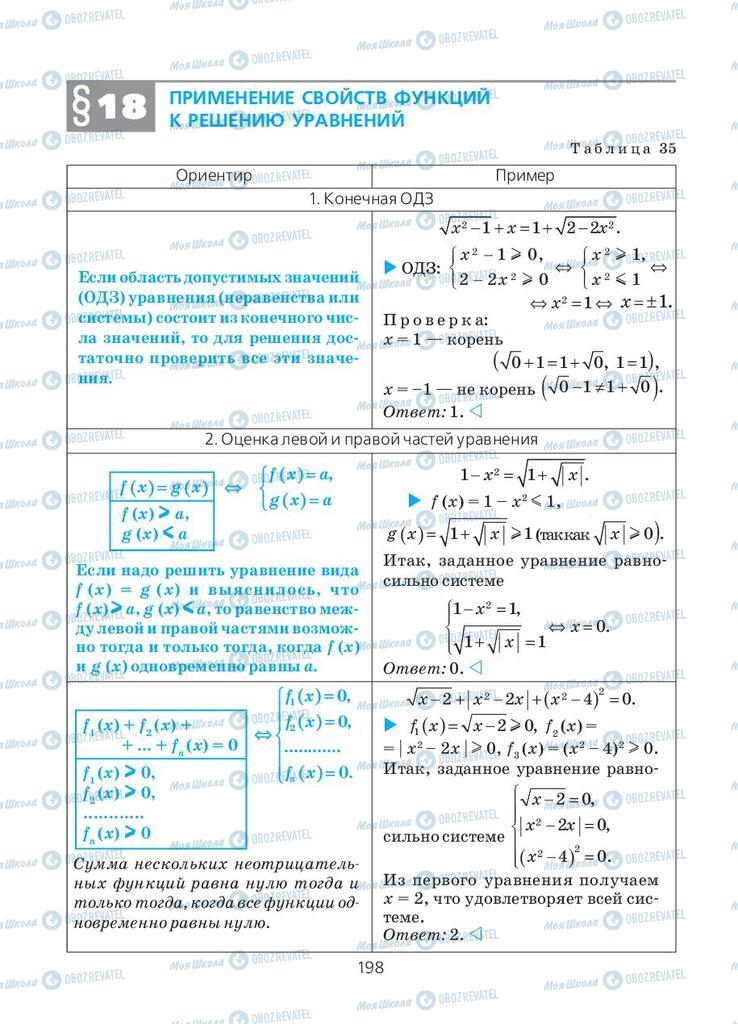 § 18
ПРИМЕНЕНИЕ СВОЙСТВ ФУНКЦИЙ
К РЕШЕНИЮ УРАВНЕНИЙ
Таблица 35
Ориентир
Пример
1. Конечная ОДЗ
Если область допустимых значений
(ОДЗ) уравнения (неравенства или
системы) состоит из конечного чис-
ла значений, то для решения дос-
таточно проверить все эти значе-
ния.
√(x² – 1) + x = 1 + √(2 – 2x²).
▶ ОДЗ: { x² – 1 ⩾ 0, 2 – 2x² ⩾ 0 ⇔ { x² ⩾ 1, x² ⩽ 1 ⇔
⇔ x² = 1 ⇔ x = ±1.
Проверка:
x = 1 — корень
(√0 + 1 = 1 + √0, 1 = 1),
x = –1 — не корень (√0 – 1 ≠ 1 + √0).
Ответ: 1. ◁
2. Оценка левой и правой частей уравнения
f (x) = g (x) ⇔ { f (x) = a, g (x) = a
f (x) ⩾ a,
g (x) ⩽ a
Если надо решить уравнение вида
f (x) = g (x) и выяснилось, что
f (x) ⩾ a, g (x) ⩽ a, то равенство меж-
ду левой и правой частями возмож-
но тогда и только тогда, когда f (x)
и g (x) одновременно равны a.
1 – x² = √(1 + √|x|).
▶ f (x) = 1 – x² ⩽ 1,
g (x) = √(1 + √|x|) ⩾ 1 (так как √|x| ⩾ 0).
Итак, заданное уравнение равно-
сильно системе
{ 1 – x² = 1, √(1 + √|x|) = 1 ⇔ x = 0.
Ответ: 0. ◁
f₁ (x) + f₂ (x) +
+ ... + fₙ (x) = 0
⇔ { f₁ (x) = 0, f₂ (x) = 0, ............ fₙ (x) = 0.
f₁ (x) ⩾ 0,
f₂ (x) ⩾ 0,
............
fₙ (x) ⩾ 0
Сумма нескольких неотрицатель-
ных функций равна нулю тогда и
только тогда, когда все функции од-
новременно равны нулю.
√(x – 2) + |x² – 2x| + (x² – 4)² = 0.
▶ f₁ (x) = √(x – 2) ⩾ 0, f₂ (x) =
= | x² – 2x | ⩾ 0, f₃ (x) = (x² – 4)² ⩾ 0.
Итак, заданное уравнение равно-
сильно системе { √(x – 2) = 0, |x² – 2x| = 0, (x² – 4)² = 0.
Из первого уравнения получаем
x = 2, что удовлетворяет всей сис-
теме.
Ответ: 2. ◁
198